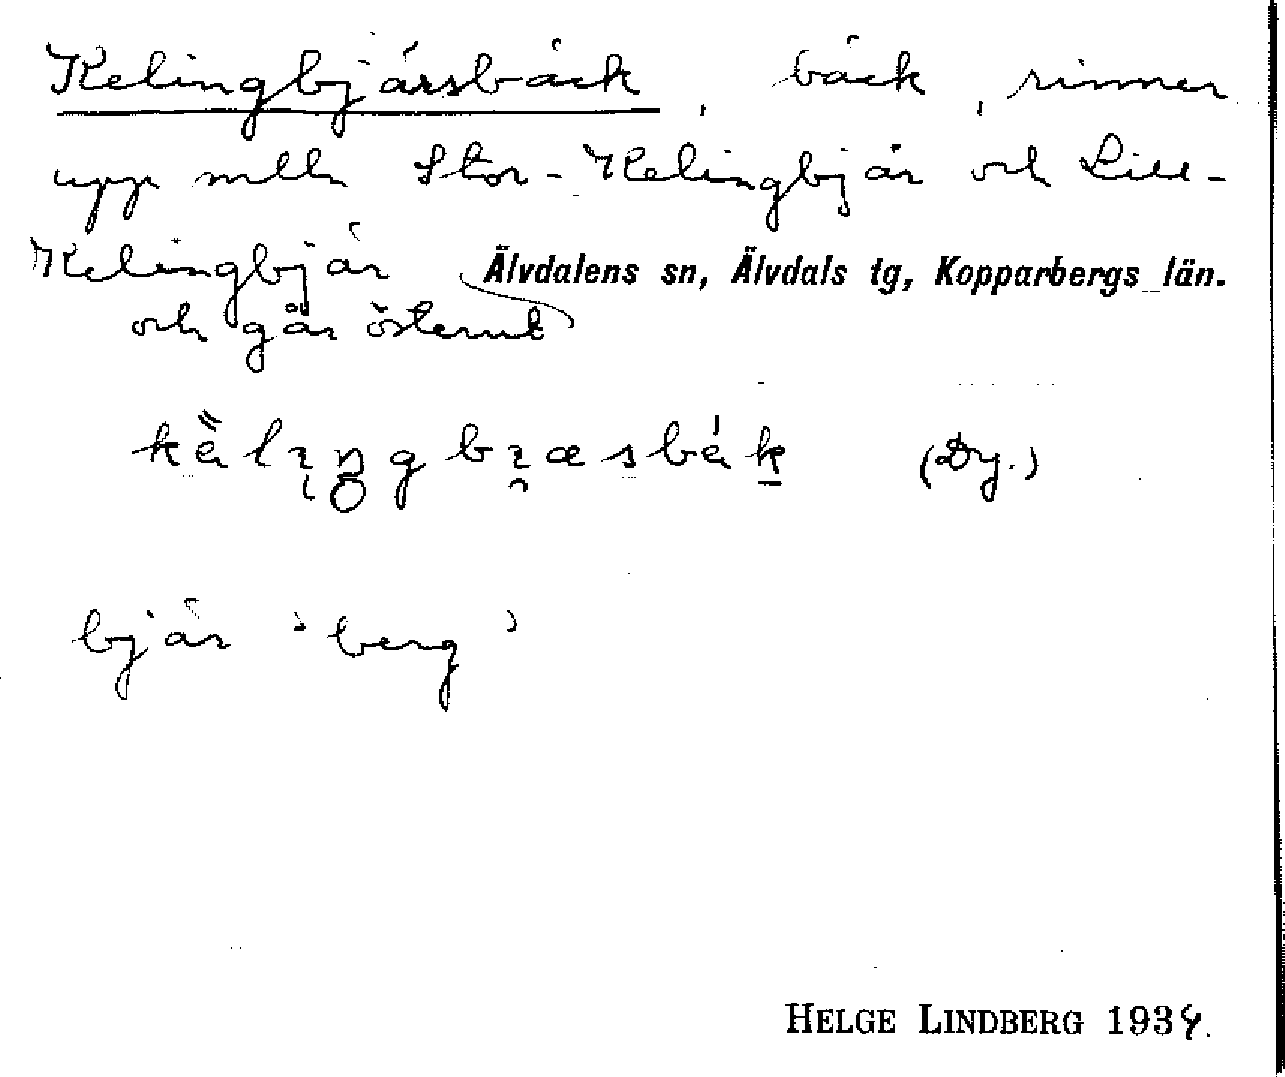 Kelingbjärsbäck, bäck, rinner
upp mlln Stor-Kelingbjär och Lill-
Kelingbjär Älvdalens sn, Älvdals tg, Kopparbergs län.
och går österut
(Dy.)
bjär 'berg'
HELGE LINDBERG 1934.